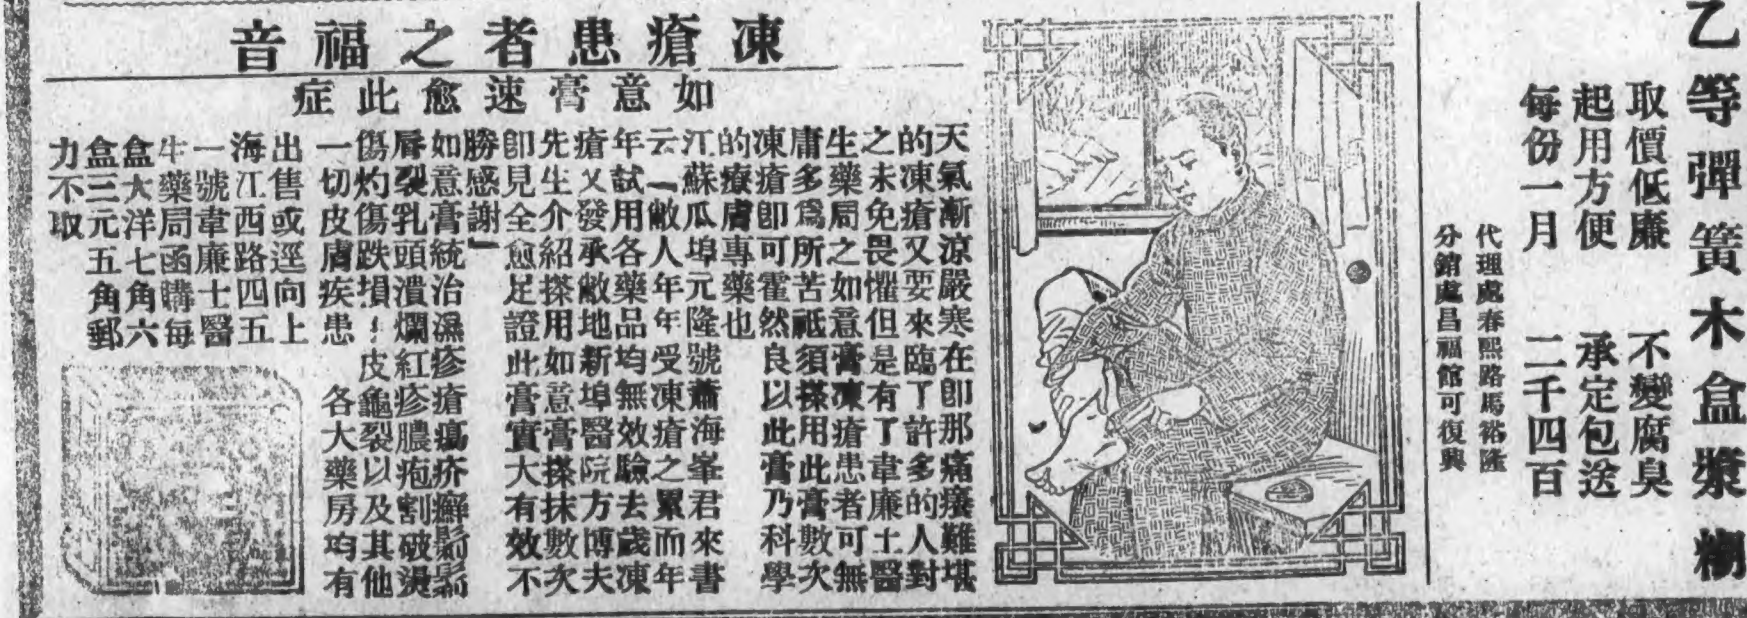 乙等彈簧木盒漿糊
取價低廉 不變腐臭
起用方便 承定包送
每份一月 二千四百
代理處春熙路馬裕隆
分銷處昌福館可復興
凍瘡患者之福音
如意膏速愈此症
天氣漸涼嚴寒在卽那痛癢難堪
的凍瘡又要來臨了許多的人對
之未免畏懼但是有了韋廉士醫
生藥局之如意膏凍瘡患者可無
庸多爲所苦祗須搽用此膏數次
凍瘡卽可霍然良以此膏乃科學
的療膚專藥也
江蘇瓜埠元隆號蕭海峯君來書
云「敝人年年受凍瘡之累而年
年試用各藥品均無效驗去歲凍
瘡又發承敝地新埠醫院方博夫
先生介紹搽用如意膏搽抹數次
卽見全愈足證此膏實大有效不
勝感謝」
如意膏統治濕疹瘡瘍疥癬鬎鬁
唇裂乳頭潰爛紅疹膿疱割破燙
傷灼傷跌損！皮龜裂以及其他
一切皮膚疾患 各大藥房均有
出售或逕向上
海江西路四五
一號韋廉士醫
生藥局函購每
盒大洋七角六
盒三元五角郵
力不取